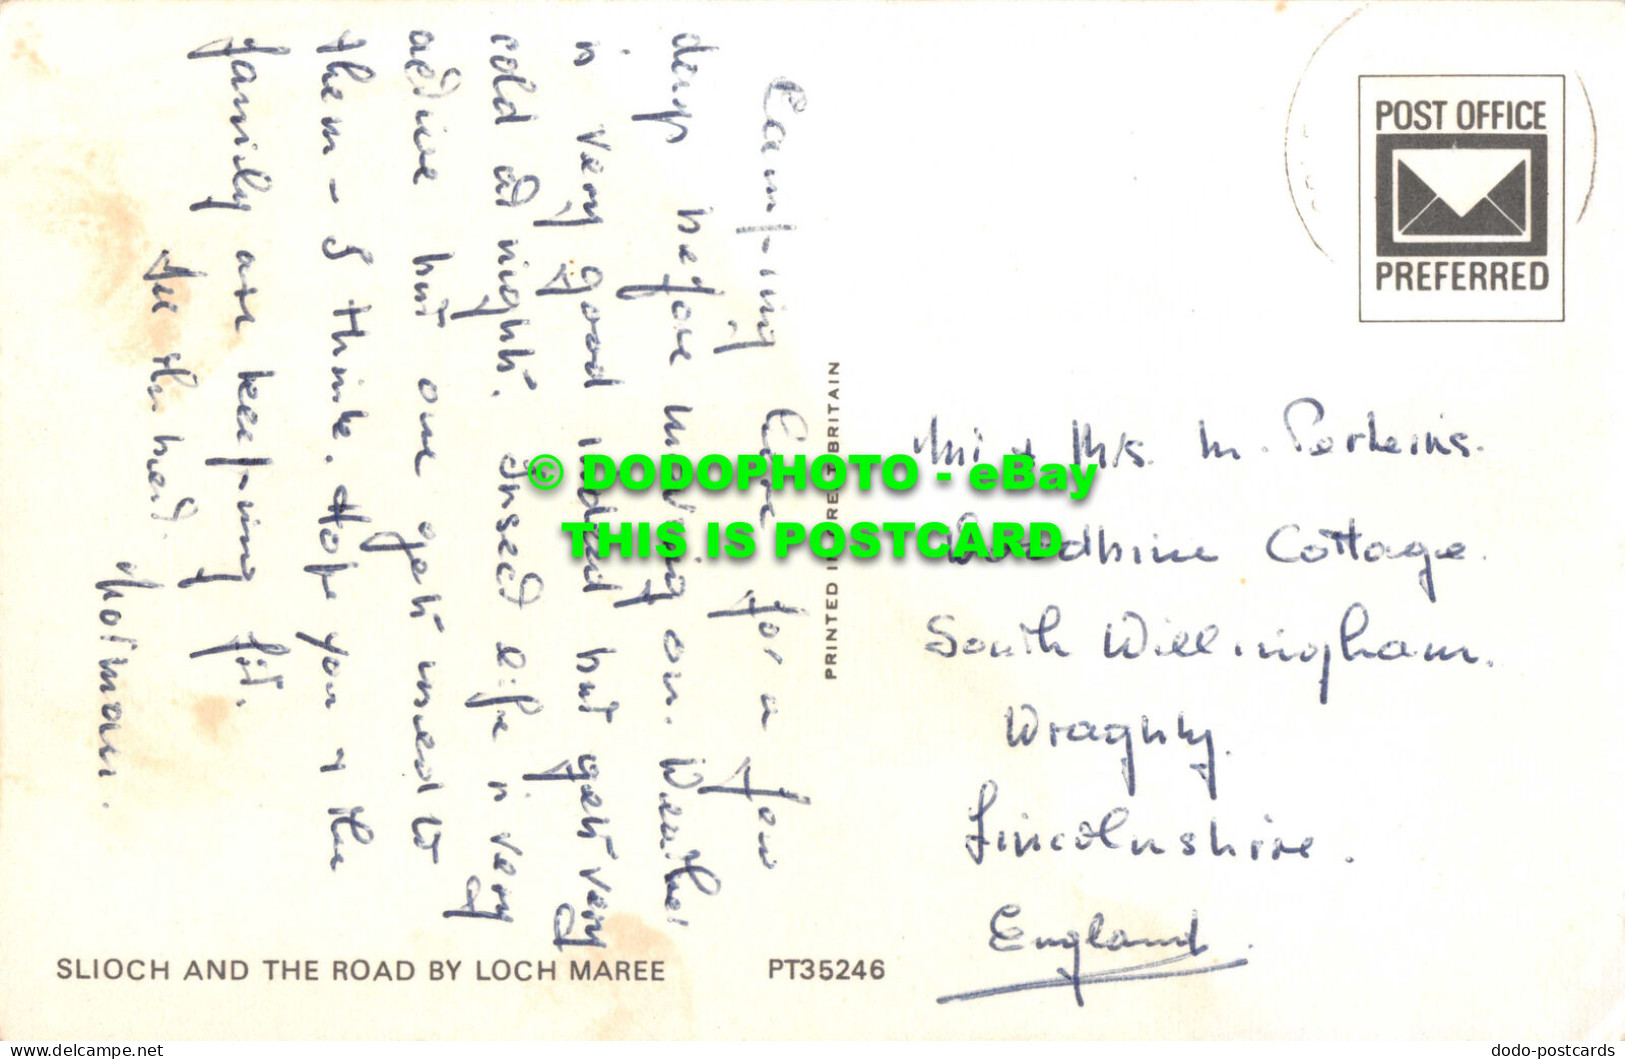 Camping here for a few
days before moving on. Weather
is very good indeed but gets very
cold at night. Insect life is very
active but one gets used to
them - I think. Hope you & the
family are keeping fit.
All the best.
PRINTED IN GREAT BRITAIN
POST OFFICE
PREFERRED
Mr & Mrs. M. Perkins.
Woodbine Cottage.
South Willingham.
Wragby.
Lincolnshire.
England.
© DODOPHOTO - eBay
THIS IS POSTCARD
SLIOCH AND THE ROAD BY LOCH MAREE PT35246
www.delcampe.net
dodo-postcards